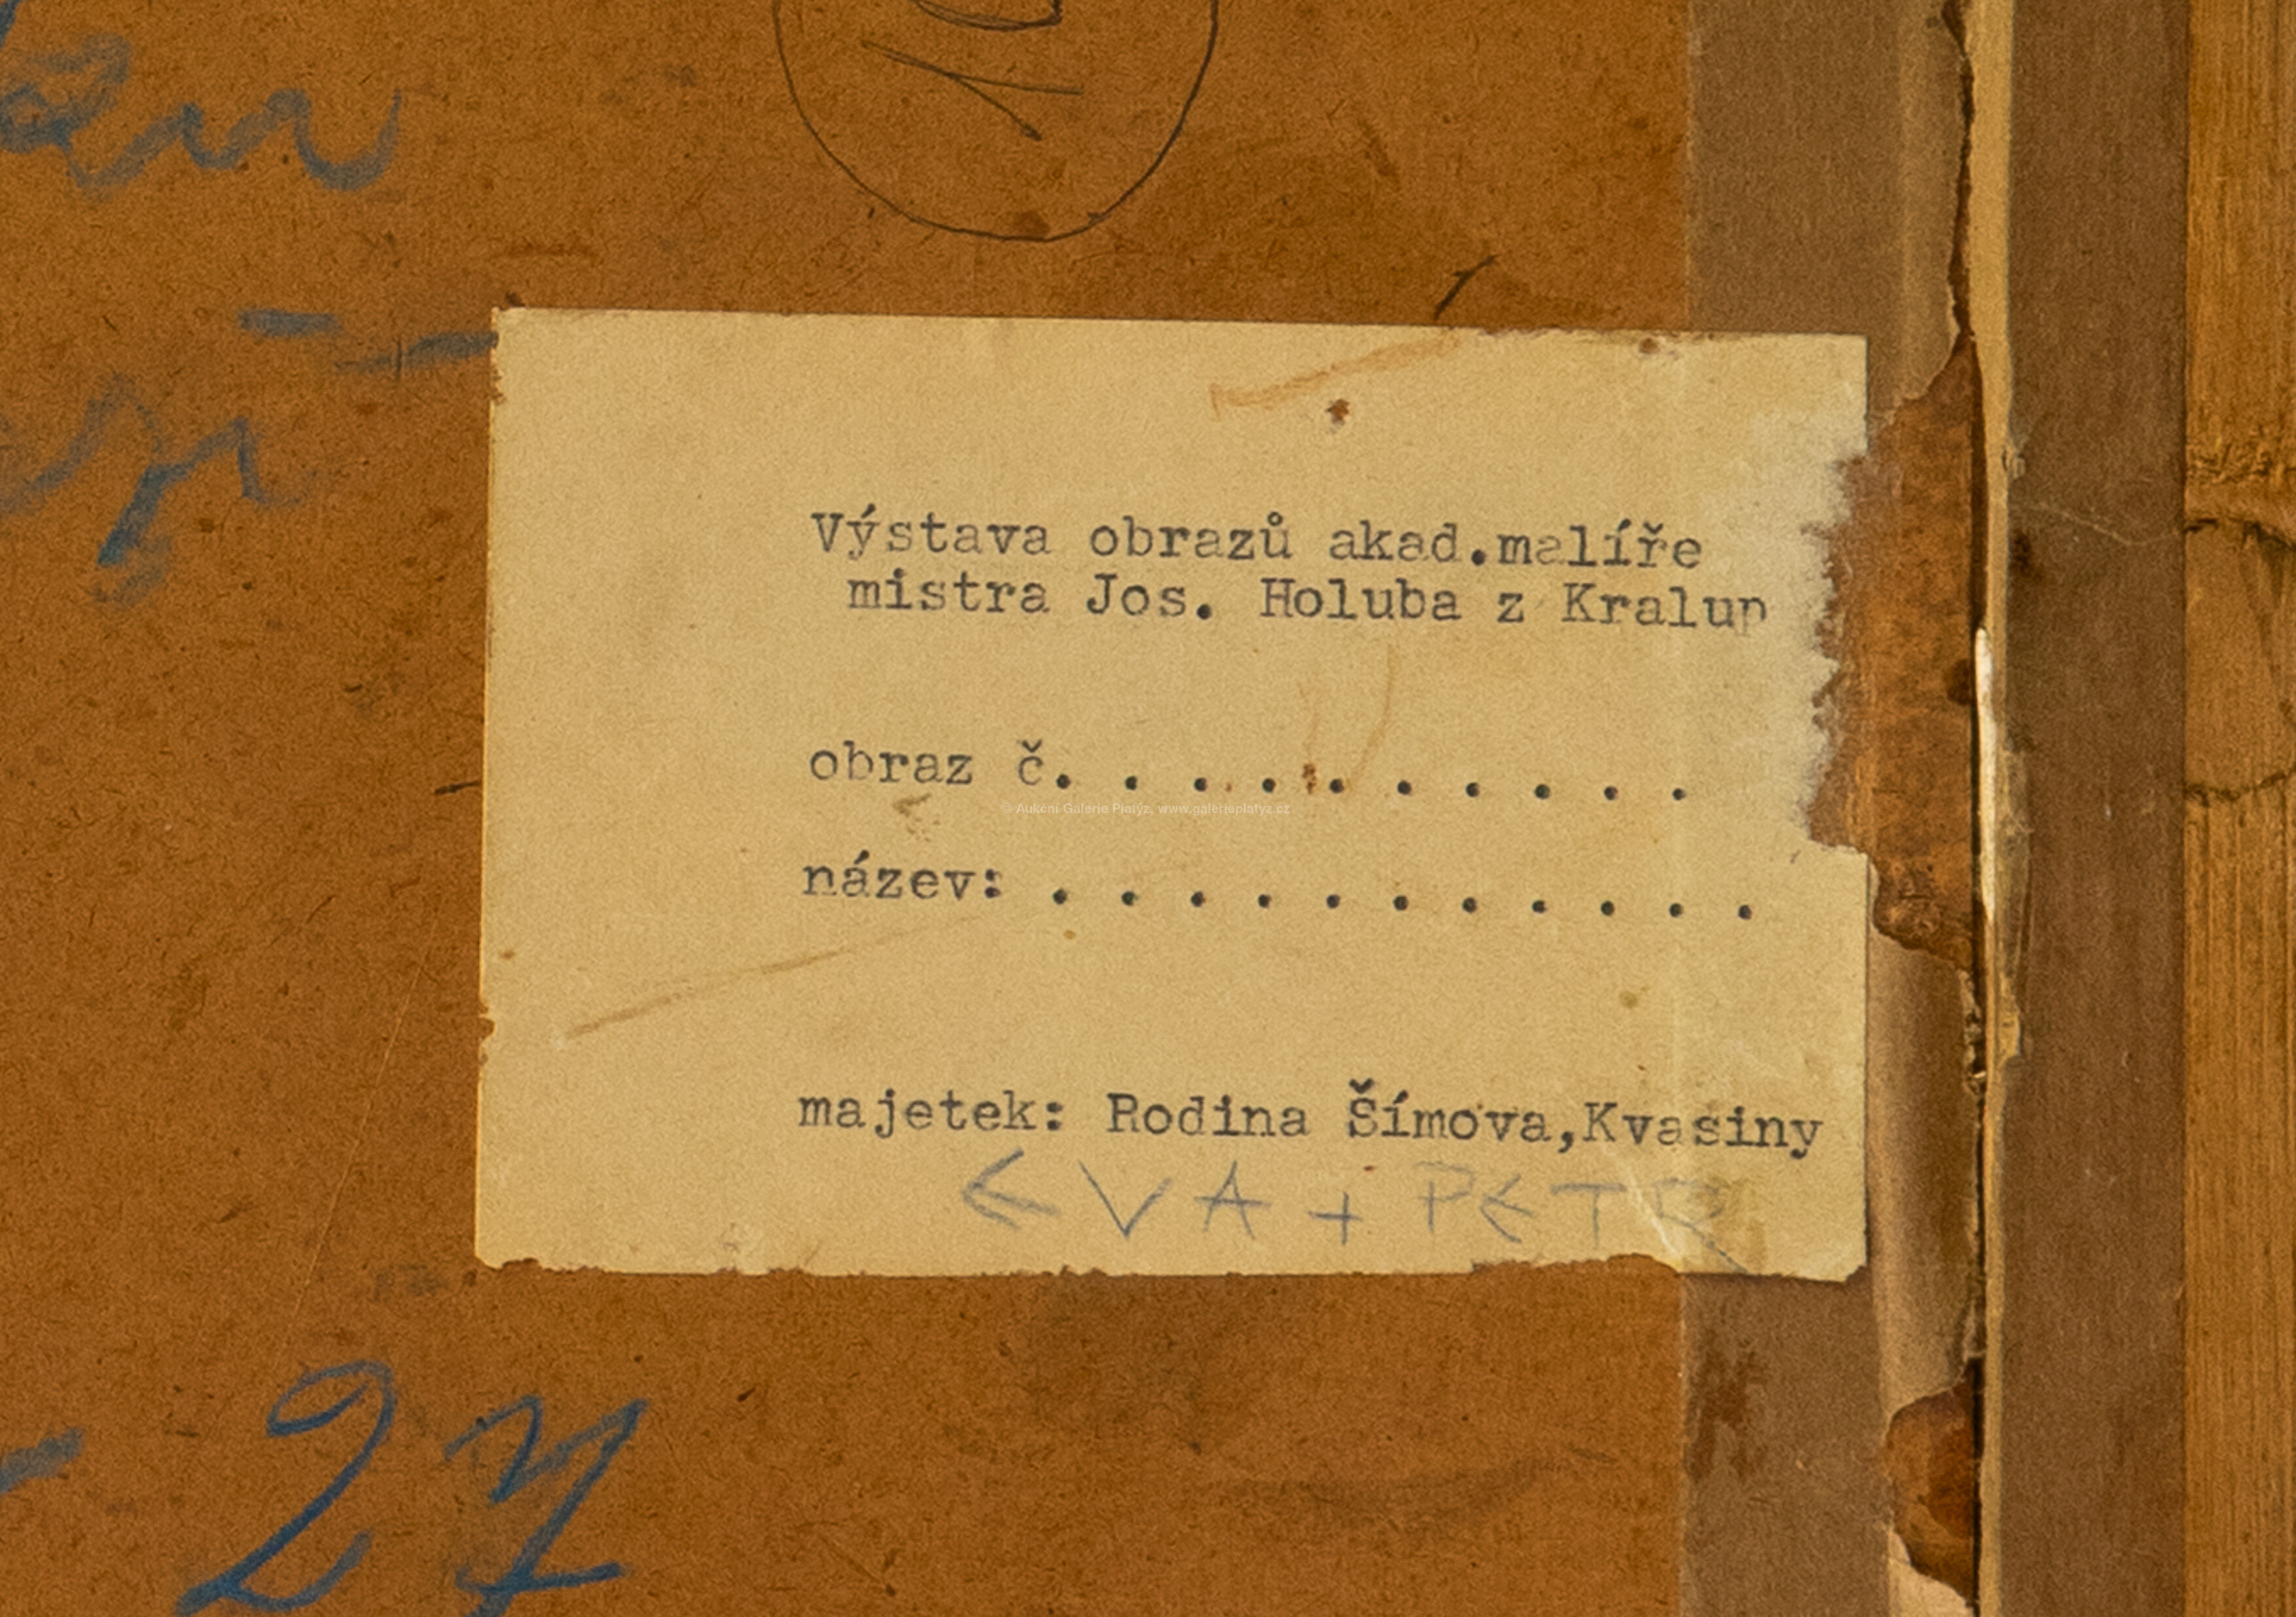 Výstava obrazů akad.malíře
mistra Jos. Holuba z Kralup
obraz č. . . . . . . . . .
© Aukční Galerie Platýz, www.galerieplatyz.cz
název: . . . . . . . . . . .
majetek: Rodina Šímova,Kvasiny
EVA + PETR
27